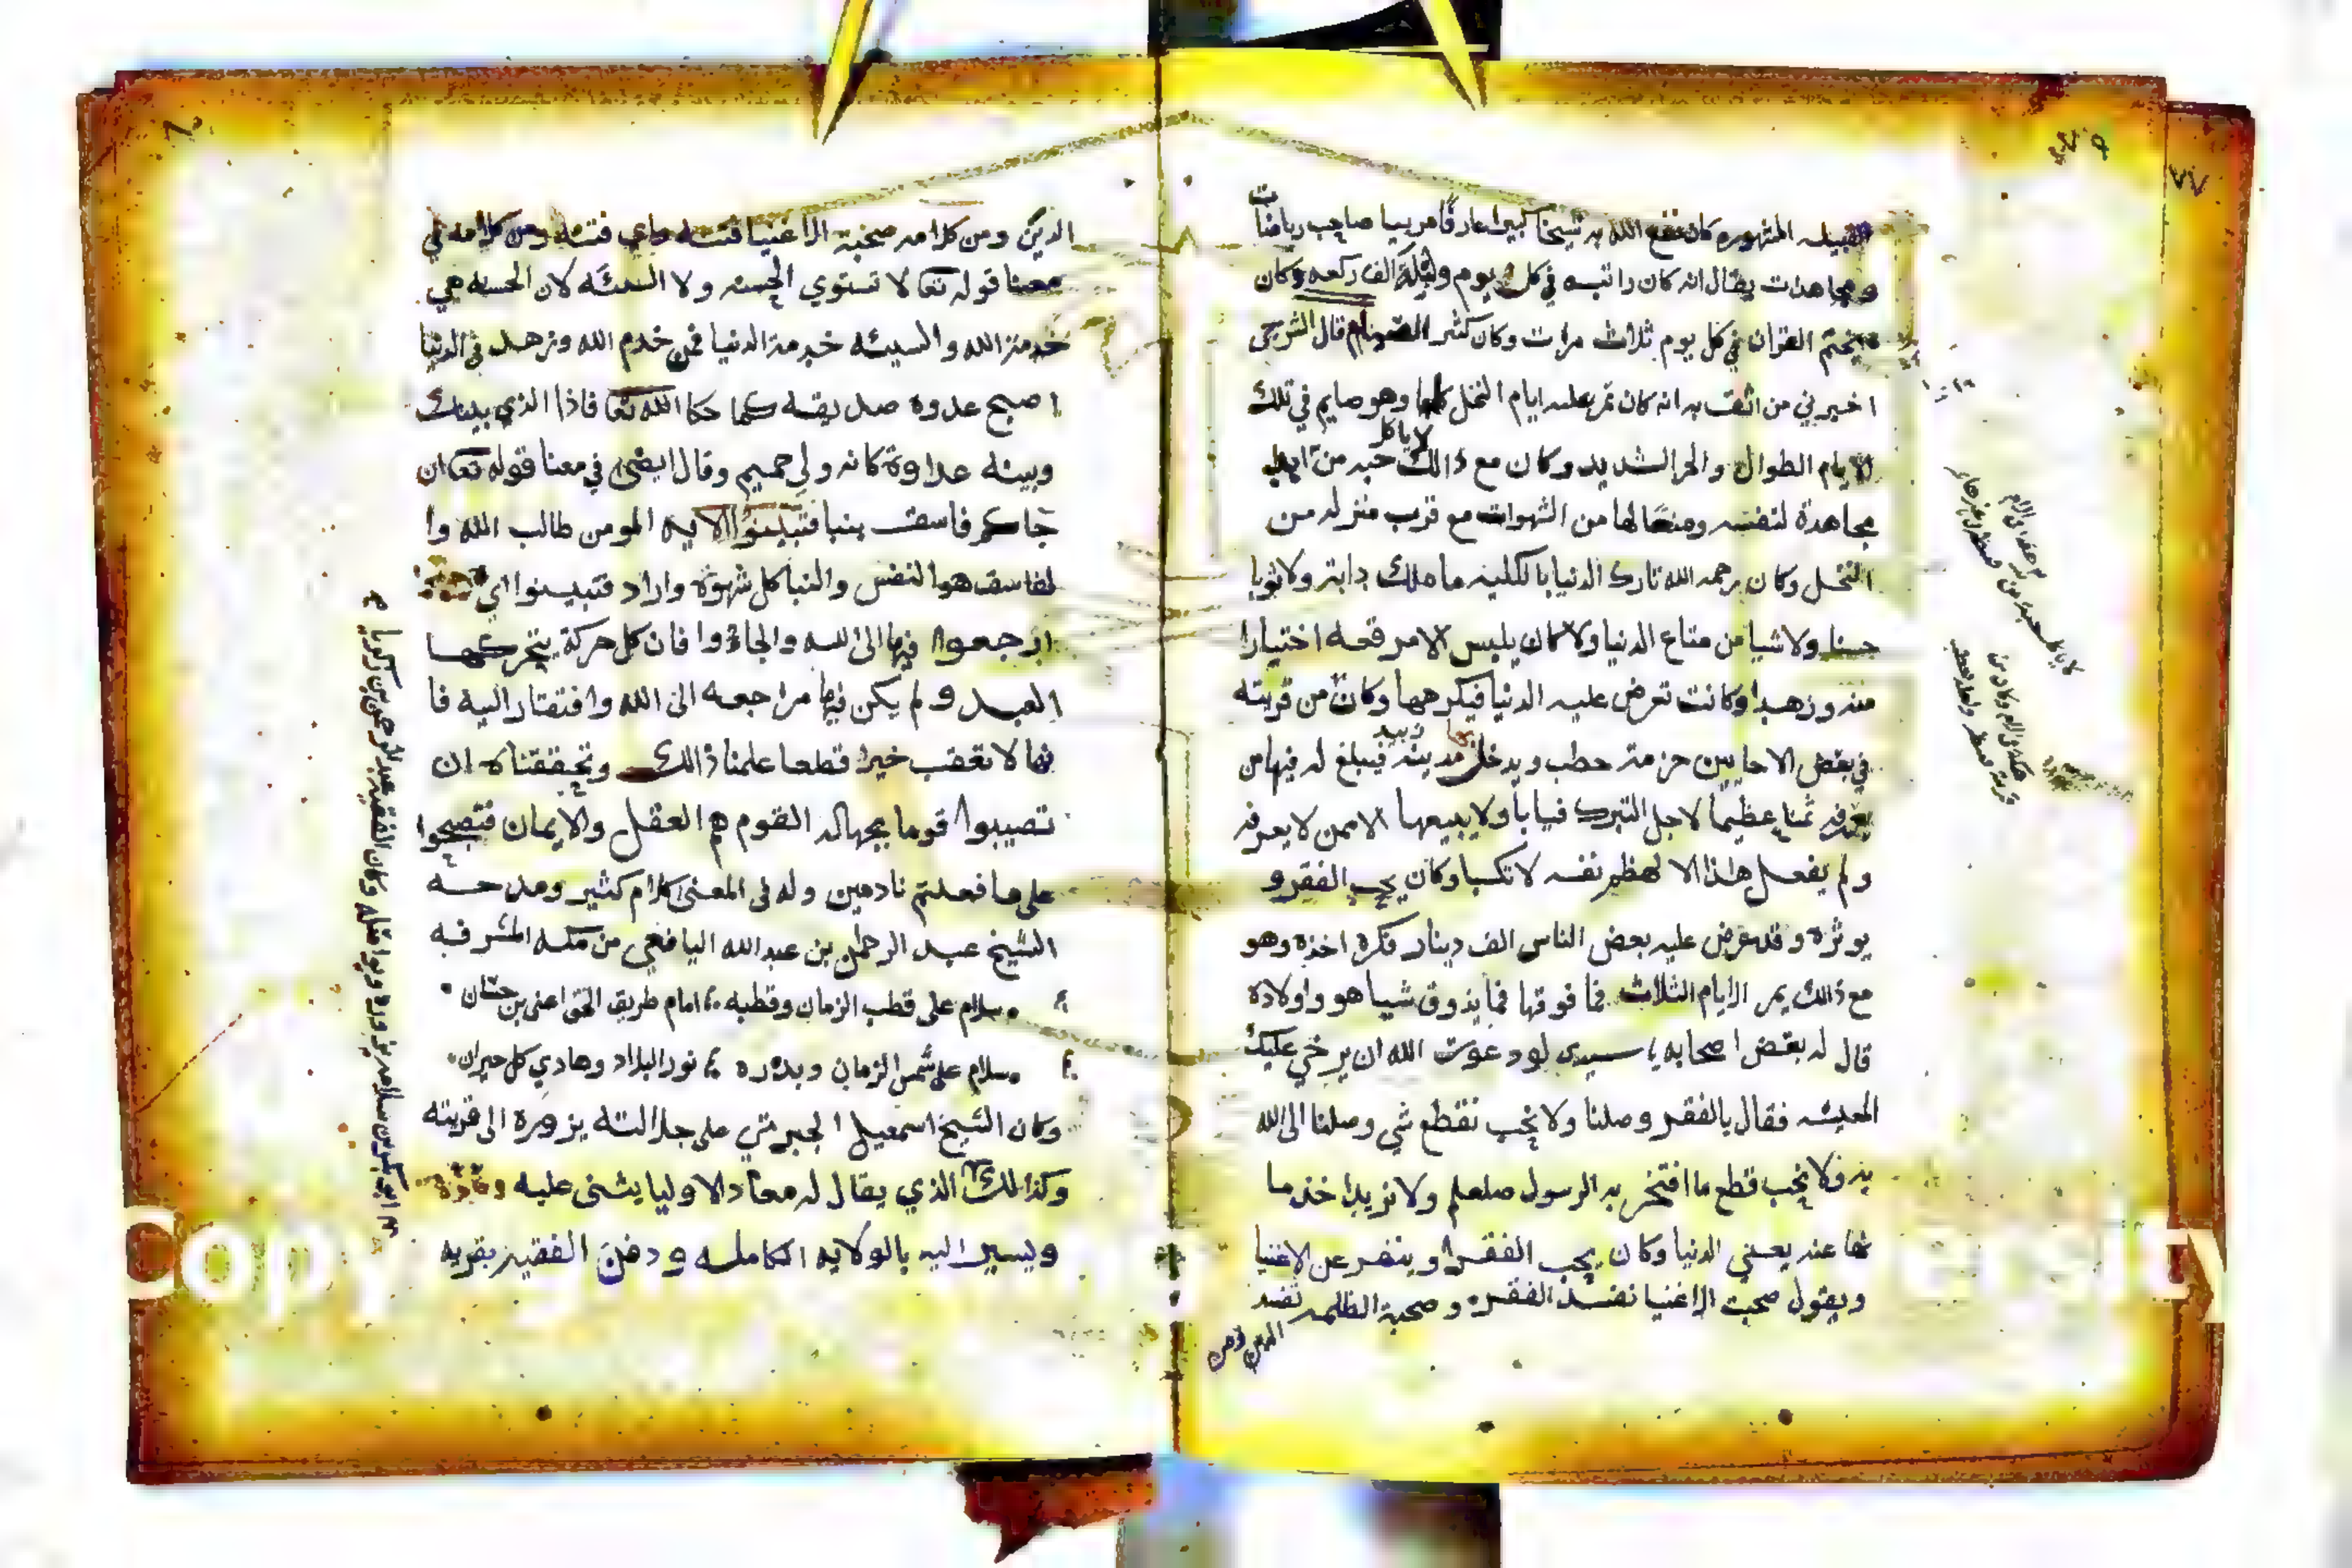 القبيله المشهوره كان نفع الله به شيخا كبيرا عارفا مربيا صاحب رياضات
ومجاهدات يقال انه كان راتبه في كل يوم وليلة الف ركعه وكان
يختم القران في كل يوم ثلاث مرات وكان كثير الصيام قال الشرجي
اخبرني من اثق به انه كان تمر عليه ايام النخل كلها وهو صايم في تلك
الايام الطوال والحر الشديد وكان مع ذالك لا ياكل حبه من
مجاهدة لنفسه ومنعا لها من الشهوات مع قرب منزله من
النخل وكان رحمه الله تارك الدنيا بالكليه ما ملك دابة ولا ثوبا
حسنا ولا شيا من متاع الدنيا ولا كان يلبس الا مرقعه اختيارا
منه وزهدا وكانت تعرض عليه الدنيا فيكرهها وكان من قريته
في بعض الاحايين حزمة حطب ويدخل بها مدينة زبيد فيبلغ له فيها من
يعرفه ثمنا عظيما لاجل التبرك فيابا ولا يبيعها الا ممن لا يعرفه
ولم يفعل هذا الا لهظم نفسه لا تكسبا وكان يحب الفقر و
يوثره وقد عرض عليه بعض الناس الف دينار فكره اخذه وهو
مع ذالك يمر الايام الثلاث فما فوقها فما يذوق شيا هو واولاده
قال له بعض اصحابه يا سيدى لو دعوت الله ان يرخي عليك
المعيشه فقال بالفقر وصلنا ولا نحب نقطع شي وصلنا الى الله
به ولا نحب قطع ما افتخر به الرسول صلعلم ولا نريد اخذ ما
نها عنه يعني الدنيا وكان يحب الفقرا وينفر عن الاغنيا
ويقول صحبت الاغنيا تفسد الفقره وصحبة الظلمه تفسد
الدين ومن
الدين ومن كلامه صحبة الاغنيا فتنه واي فتنه ومن كلامه في
معنا قوله تعا لا تستوي الحسنه ولا السيئه لان الحسنه هي
خدمة الله والسيئه خدمة الدنيا فمن خدم الله وزهد في الدنيا
اصبح عدوه صديقه كما حكا الله تعا فاذا الذي بينك
وبينه عداوة كانه ولي حميم وقال ايضى في معنا قوله تعا ان
جاكم فاسق بنبا فتبينوا الايه المومن طالب الله وا
لفاسق هوا النفس والنبا كل شهوة واراد فتبينوا اي
ارجعوا فيها الى الله والجاؤا فان كل حركة يتحركها
العبد ولم يكن فيها مراجعه الى الله وافتقار اليه فا
نها لا تعقب خيرا قطعا علمنا ذالك وتحققناه ان
تصيبوا قوما بجهاله القوم هم العقل والايمان فتصبحوا
على ما فعلتم نادمين وله في المعنى كلام كثير ومدحه
الشيخ عبد الرحمن بن عبد الله اليافعي من مكه المشرفه
سلام على قطب الزمان وقطبه امام طريق الحق اعنى بن حسان
سلام على شمس الزمان وبدره نور البلاد وهادي كل حيران
وكان الشيخ اسمعيل الجبرتي على جلالته يزوره الى قريته
وكذالك الذي يقال له معاد الاوليا يثنى عليه
ويسير اليه بالولايه الكامله ودفن الفقيه بقريه